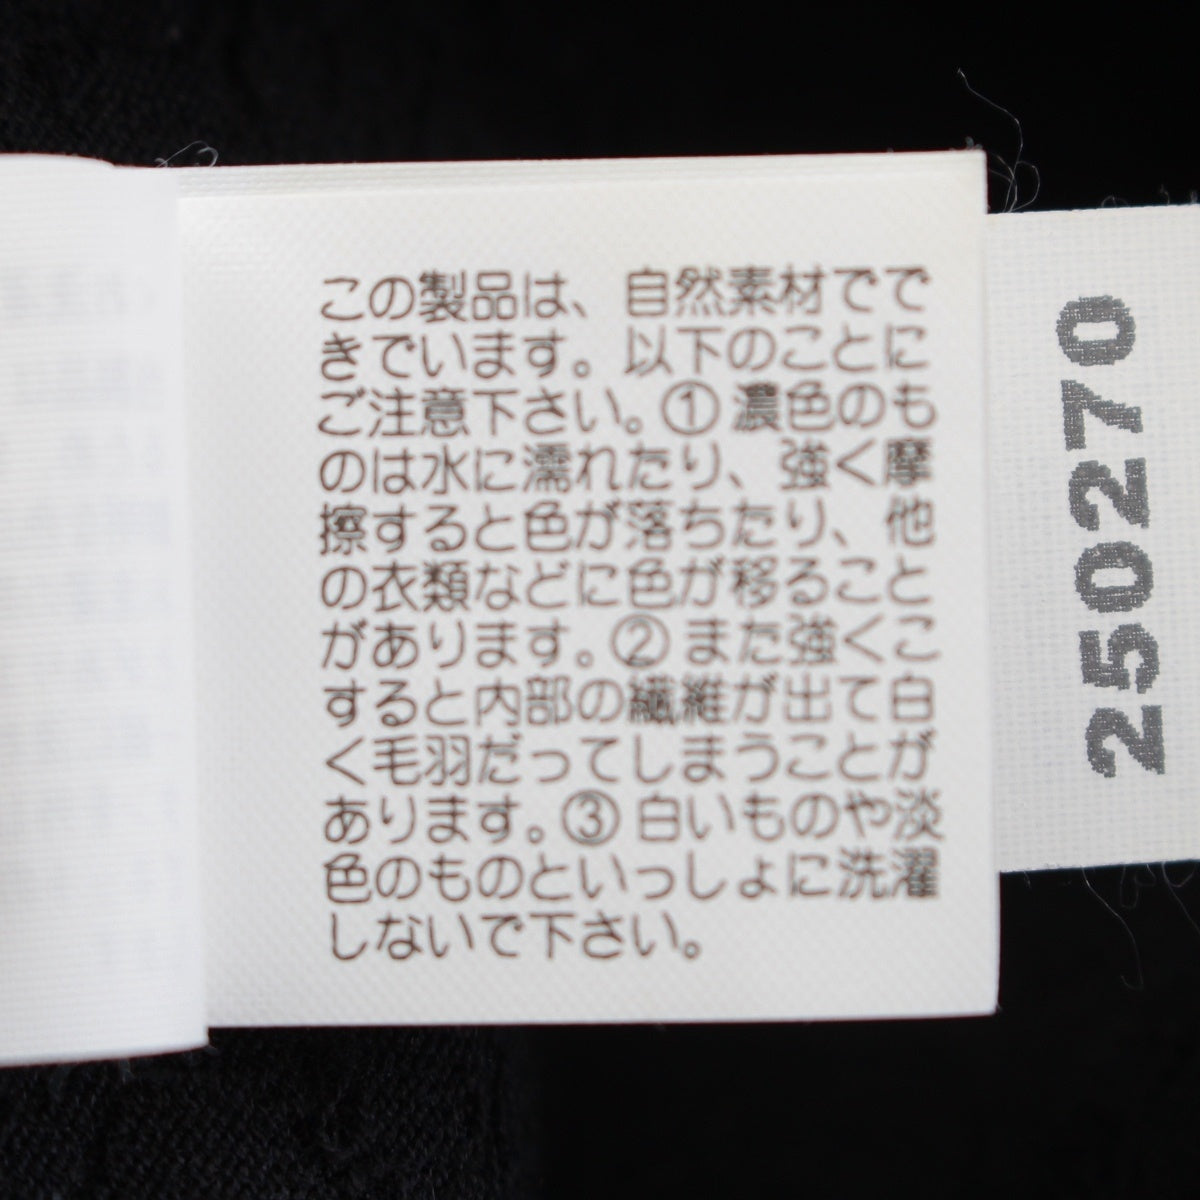 この製品は、自然素材でで
きでいます。以下のことに
ご注意下さい。① 濃色のも
のは水に濡れたり、強く摩
擦すると色が落ちたり、他
の衣類などに色が移ること
があります。② また強くこ
すると内部の繊維が出て白
く毛羽だってしまうことが
あります。③ 白いものや淡
色のものといっしょに洗濯
しないで下さい。
250270